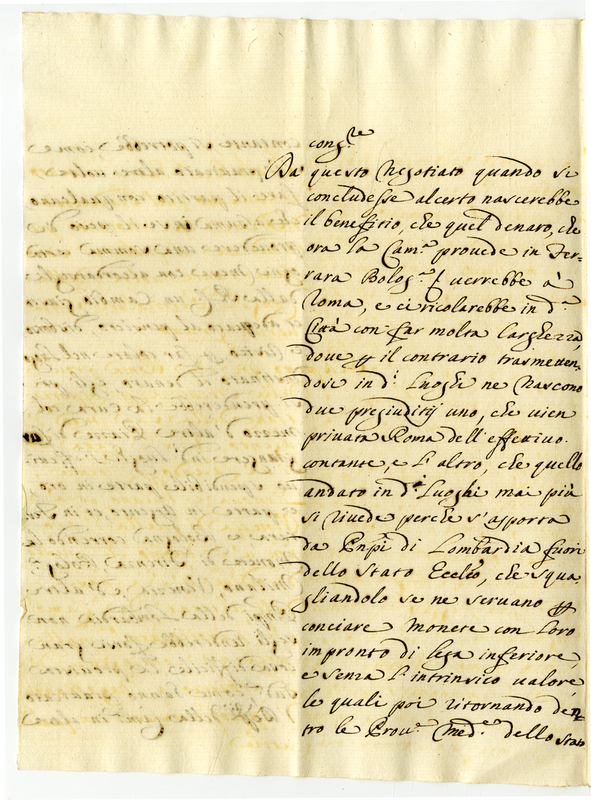 cong.re
Da questo Negotiato quando si
concludesse al certo nascerebbe
il benefitio, che quel denaro, che
ora la Cam.a provede in Fer-
rara Bolog.a verrebbe à
Roma, e ciricolarebbe in d.a
Città con far molta larghezza
dove il contrario trasmetten-
dose in d.i Luoghi ne nascono
due pregiuditij uno, che vien
privata Roma dell'effettivo
contante, e l'altro, che quello
andato in d.i Luoghi mai più
si rivede perche s'asporta
da Pnpi di Lombardia fuori
dello Stato Ecclco, che squa-
gliandolo se ne servano
conciare Monete con loro
impronto di lega inferiore,
e senza l'intrinsico valore
le quali poi ritornando den-
tro le Prov.e Med.e dello Stato